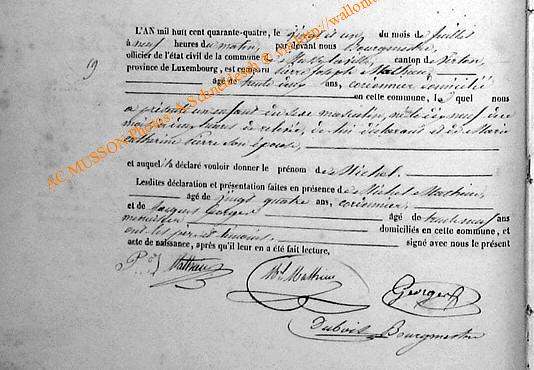 19
L'AN mil huit cent quarante-quatre, le vingt et un du mois de juillet
à neuf heures du matin, par devant nous Bourgmestre,
officier de l'état civil de la commune de Mussy-la-ville, canton de Virton,
province de Luxembourg, est comparu Pierre Joseph Mathieu,
âgé de trente ans, cordonnier domicilié
en cette commune, lequel nous
a présenté un enfant du sexe masculin, né le dix neuf de ce
mois à heures de relevée, de lui déclarant et de Marie
Catherine Pierre son épouse,
et auquel il a déclaré vouloir donner le prénom de Michel.
Lesdites déclaration et présentation faites en présence de Michel Mathieu,
âgé de vingt quatre ans, cordonnier,
et de Jacques Georges âgé de trente neuf ans
menuisier domiciliés en cette commune, et
ont les père et témoins, signé avec nous le présent
acte de naissance, après qu'il leur en a été fait lecture,
P J Mathieu
Mel Mathieu
Georges
Dubois Bourgmestre
AC MUSSON Photos A Schneider http://wallon